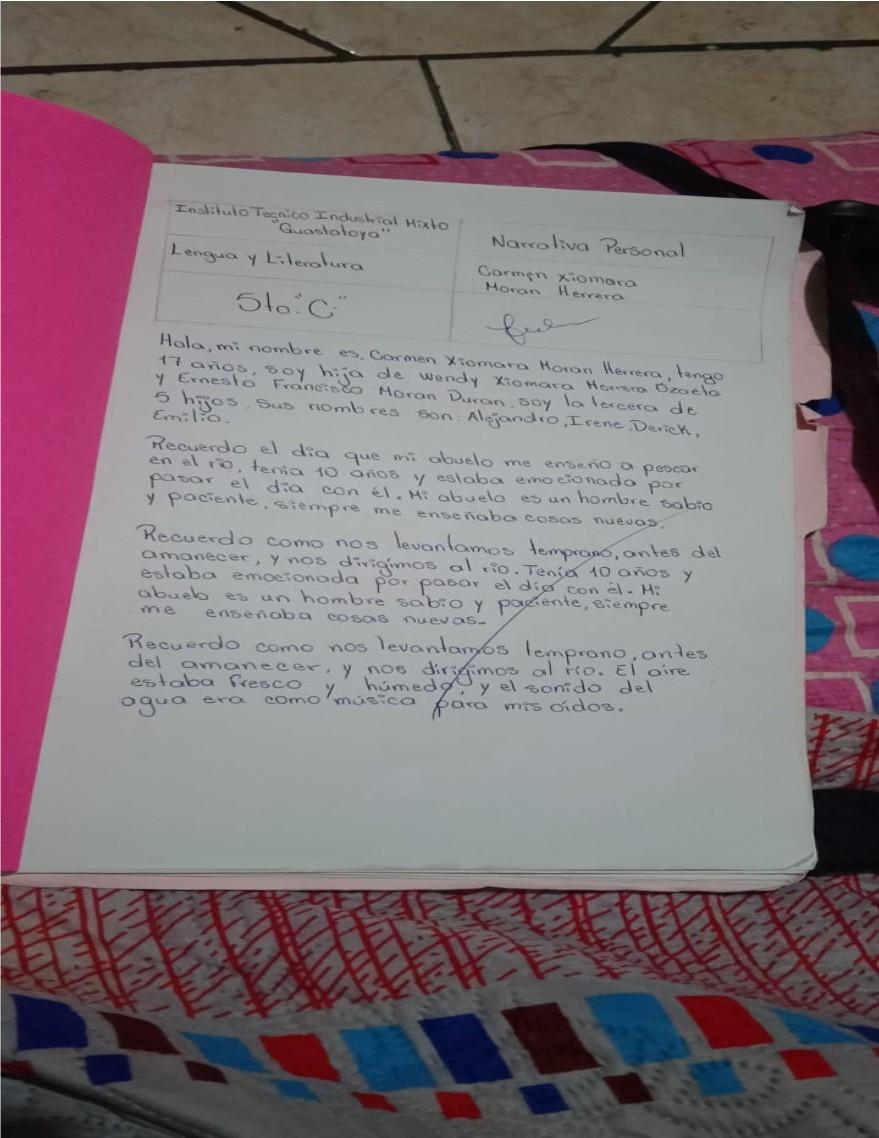 Instituto Tecnico Industrial Mixto
"Guastatoya"
Lengua y Literatura
5to."C"
Narrativa Personal
Carmen Xiomara
Moran Herrera
Hola, mi nombre es, Carmen Xiomara Moran Herrera, tengo
17 años, soy hija de Wendy Xiomara Herrera Ozaeta
y Ernesto Francisco Moran Duran. soy la tercera de
5 hijos, Sus nombres son: Alejandro, Irene, Derick,
Emilio.
Recuerdo el día que mi abuelo me enseño a pescar
en el río, tenía 10 años y estaba emocionada por
pasar el día con él. Mi abuelo es un hombre sabio
y paciente, siempre me enseñaba cosas nuevas.
Recuerdo como nos levantamos temprano, antes del
amanecer, y nos dirigimos al río. Tenía 10 años y
estaba emocionada por pasar el día con él. Mi
abuelo es un hombre sabio y paciente, siempre
me enseñaba cosas nuevas.
Recuerdo como nos levantamos temprano, antes
del amanecer, y nos dirigimos al río. El aire
estaba fresco y húmedo, y el sonido del
agua era como música para mis oídos.